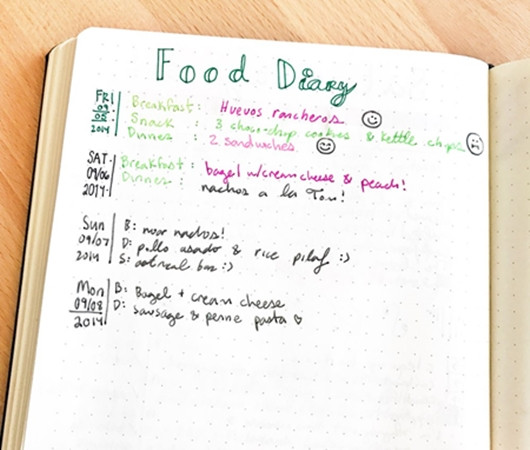 Food Diary
FRI Breakfast: Huevos rancheros
09/05 Snack: 3 choco-chip cookies & kettle chips
2014 Dinner: 2 sandwiches
SAT Breakfast: bagel w/cream cheese & peach!
09/06 Dinner: nachos a la Tom!
2014
Sun B: moar nachos!
09/07 D: pollo asado & rice pilaf :)
2014 S: oatmeal bar :)
Mon B: Bagel + cream cheese
09/08 D: sausage & penne pasta ♡
2014